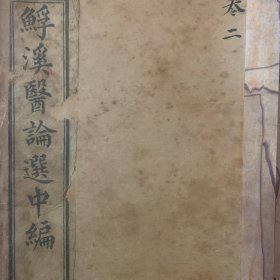 鯚溪醫論選中編
卷二